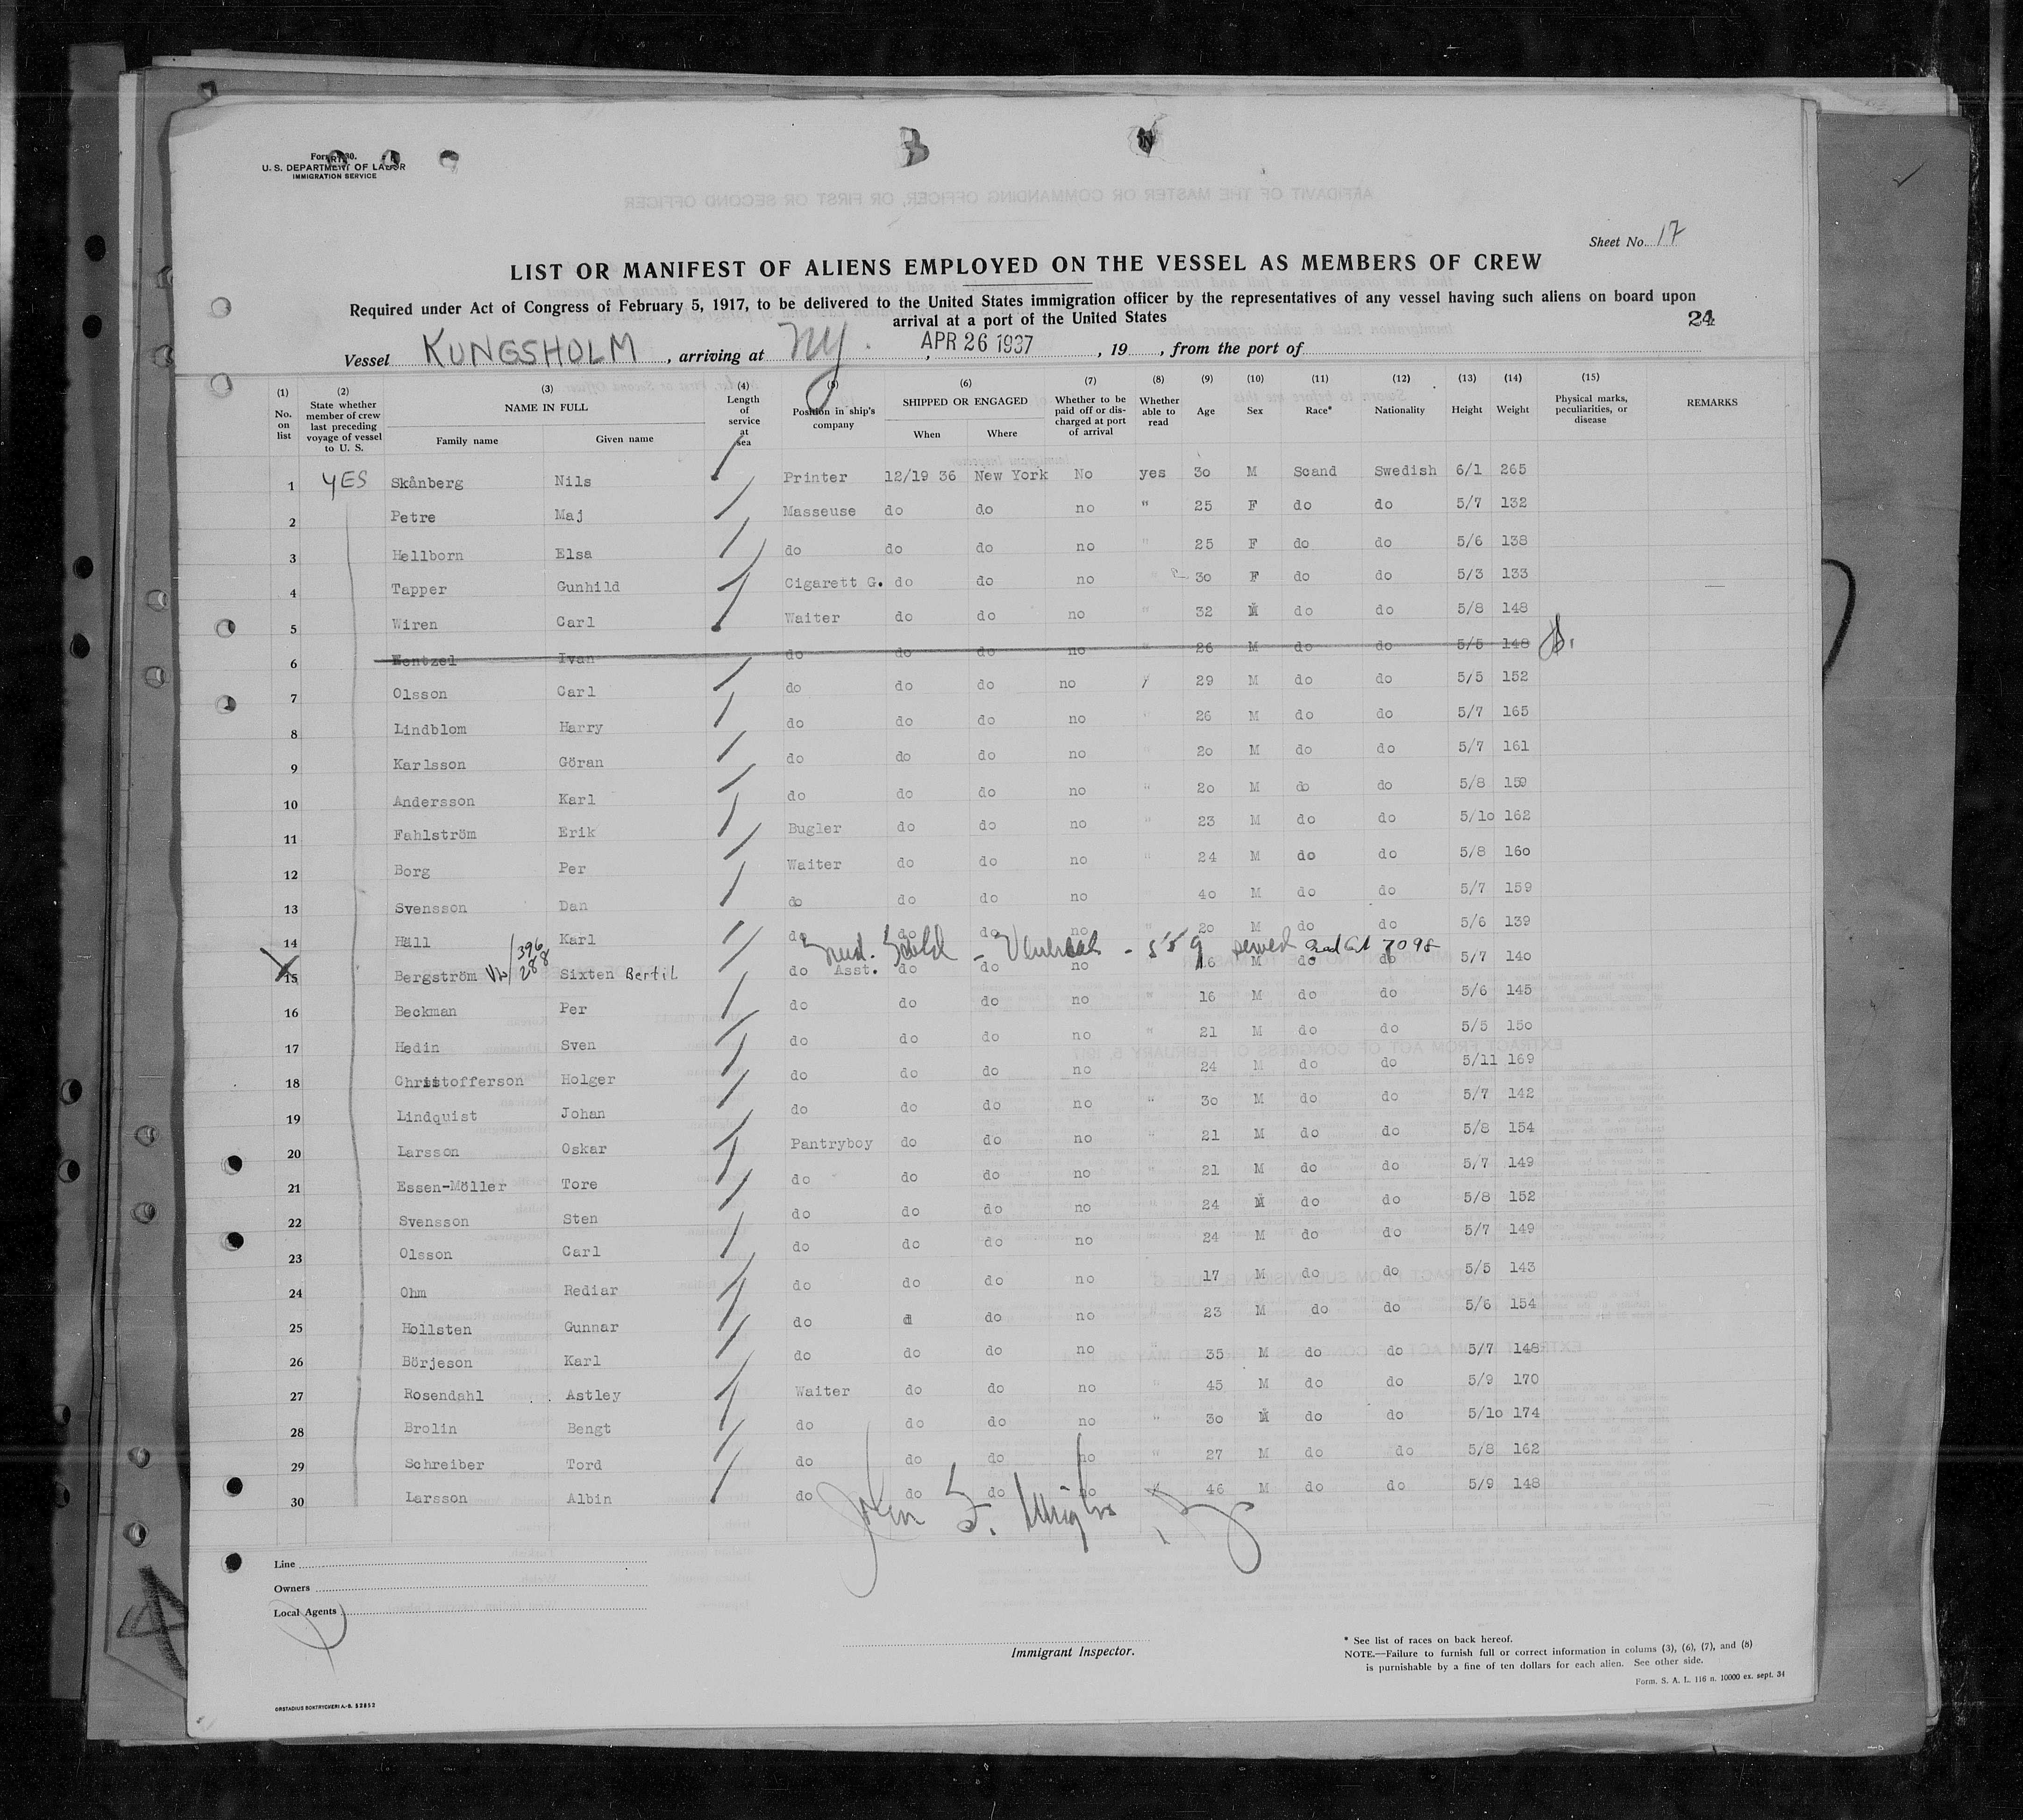 Form 680.
U. S. DEPARTMENT OF LABOR
IMMIGRATION SERVICE
Sheet No. 17
LIST OR MANIFEST OF ALIENS EMPLOYED ON THE VESSEL AS MEMBERS OF CREW
Required under Act of Congress of February 5, 1917, to be delivered to the United States immigration officer by the representatives of any vessel having such aliens on board upon
arrival at a port of the United States
24
Vessel KUNGSHOLM, arriving at NY. , APR 26 1937, 19 , from the port of
(1) (2) (3) (4) (5) (6) (7) (8) (9) (10) (11) (12) (13) (14) (15)
No. on list State whether member of crew last preceding voyage of vessel to U. S. NAME IN FULL Family name Given name Length of service at sea Position in ship's company SHIPPED OR ENGAGED When Where Whether to be paid off or discharged at port of arrival Whether able to read Age Sex Race* Nationality Height Weight Physical marks, peculiarities, or disease REMARKS
1 YES Skånberg Nils Printer 12/19 36 New York No yes 30 M Scand Swedish 6/1 265
2 Petre Maj Masseuse do do no " 25 F do do 5/7 132
3 Hellborn Elsa do do do no " 25 F do do 5/6 138
4 Tapper Gunhild Cigarett G. do do no " 30 F do do 5/3 133
5 Wiren Carl Waiter do do no " 32 M do do 5/8 148
6 Wentzel Ivan do do do no " 26 M do do 5/5 148
7 Olsson Carl do do do no 29 M do do 5/5 152
8 Lindblom Harry do do do no " 26 M do do 5/7 165
9 Karlsson Göran do do do no " 20 M do do 5/7 161
10 Andersson Karl do do do no " 20 M do do 5/8 159
11 Fahlström Erik Bugler do do no " 23 M do do 5/10 162
12 Borg Per Waiter do do no " 24 M do do 5/8 160
13 Svensson Dan do do do no " 40 M do do 5/7 159
14 Häll Karl do do do no " 20 M do do 5/6 139
396
288
- 559 served 7098
15 Bergström Sixten Bertil do Asst. do do no 16 M do do 5/7 140
16 Beckman Per do do do no " 16 M do do 5/6 145
17 Hedin Sven do do do no " 21 M do do 5/5 150
18 Christofferson Holger do do do no " 24 M do do 5/11 169
19 Lindquist Johan do do do no " 30 M do do 5/7 142
20 Larsson Oskar Pantryboy do do no " 21 M do do 5/8 154
21 Essen-Möller Tore do do do no " 21 M do do 5/7 149
22 Svensson Sten do do do no " 24 M do do 5/8 152
23 Olsson Carl do do do no " 24 M do do 5/7 149
24 Ohm Rediar do do do no " 17 M do do 5/5 143
25 Hollsten Gunnar do d do no " 23 M do do 5/6 154
26 Börjeson Karl do do do no " 35 M do do 5/7 148
27 Rosendahl Astley Waiter do do no " 45 M do do 5/9 170
28 Brolin Bengt do do do no " 30 M do do 5/10 174
29 Schreiber Tord do do do no " 27 M do do 5/8 162
30 Larsson Albin do do do no " 46 M do do 5/9 148
Line
Owners
Local Agents
Immigrant Inspector.
* See list of races on back hereof.
NOTE.—Failure to furnish full or correct information in colums (3), (6), (7), and (8)
is purnishable by a fine of ten dollars for each alien. See other side.
Form. S. A. L. 116 n. 10000 ex. sept. 34
ORSTADIUS BOKTRYCKERI A.-B. 52852